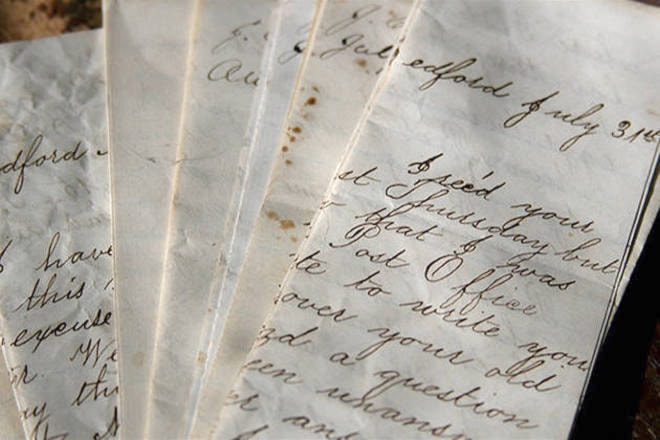 dford
I have
this
excuse
r. We
y th
Au
Jul
edford July 31st
I rec'd your
st Thursday but
that I was
Post Office
te to write you
over your old
d a question
een unansw
er an